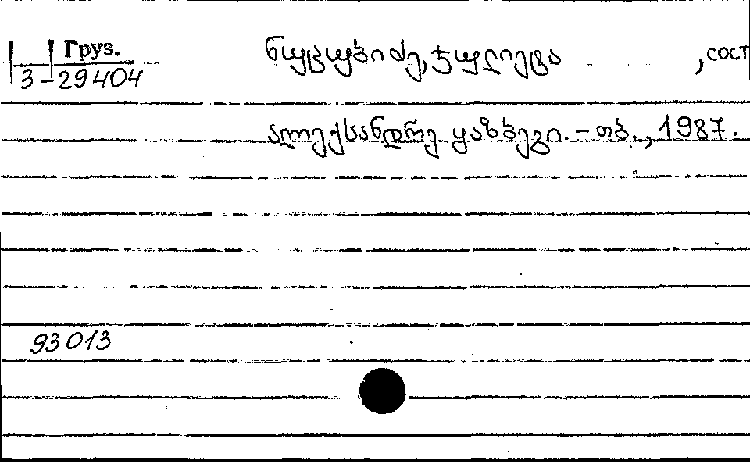 Груз.
3-29404
ნუცუბიძე, ჯულიეტა , сост
ალექსანდრე ყაზბეგი. - თბ., 1987.
93013